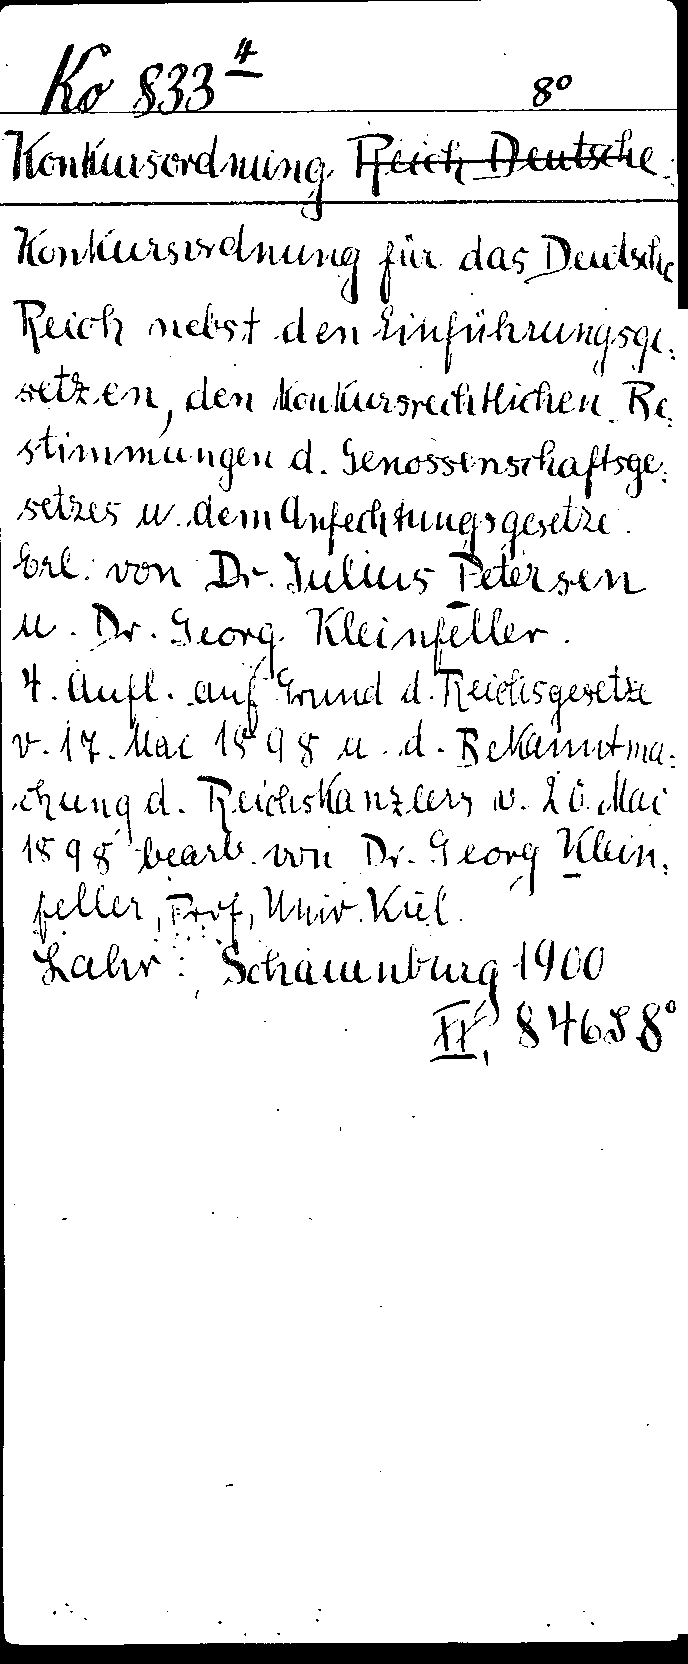 Ko 833 4 8°
Konkursordnung Reich Deutsche
Konkursordnung für das Deutsche
Reich nebst den Einführungsge:
setzen, den konkursrechtlichen Be:
stimmungen d. Genossenschaftsge:
setzes u. dem Anfechtungsgesetze.
Erl. von Dr. Julius Petersen
u. Dr. Georg Kleinfeller.
4. Aufl. auf Grund d. Reichsgesetze
v. 17. Mai 1898 u. d. Bekanntma:
chung d. Reichskanzlers v. 20. Mai
1898 bearb. von Dr. Georg Klein:
feller, Prof, Univ. Kiel.
Lahr: Schauenburg 1900
XX, 846 S 8°